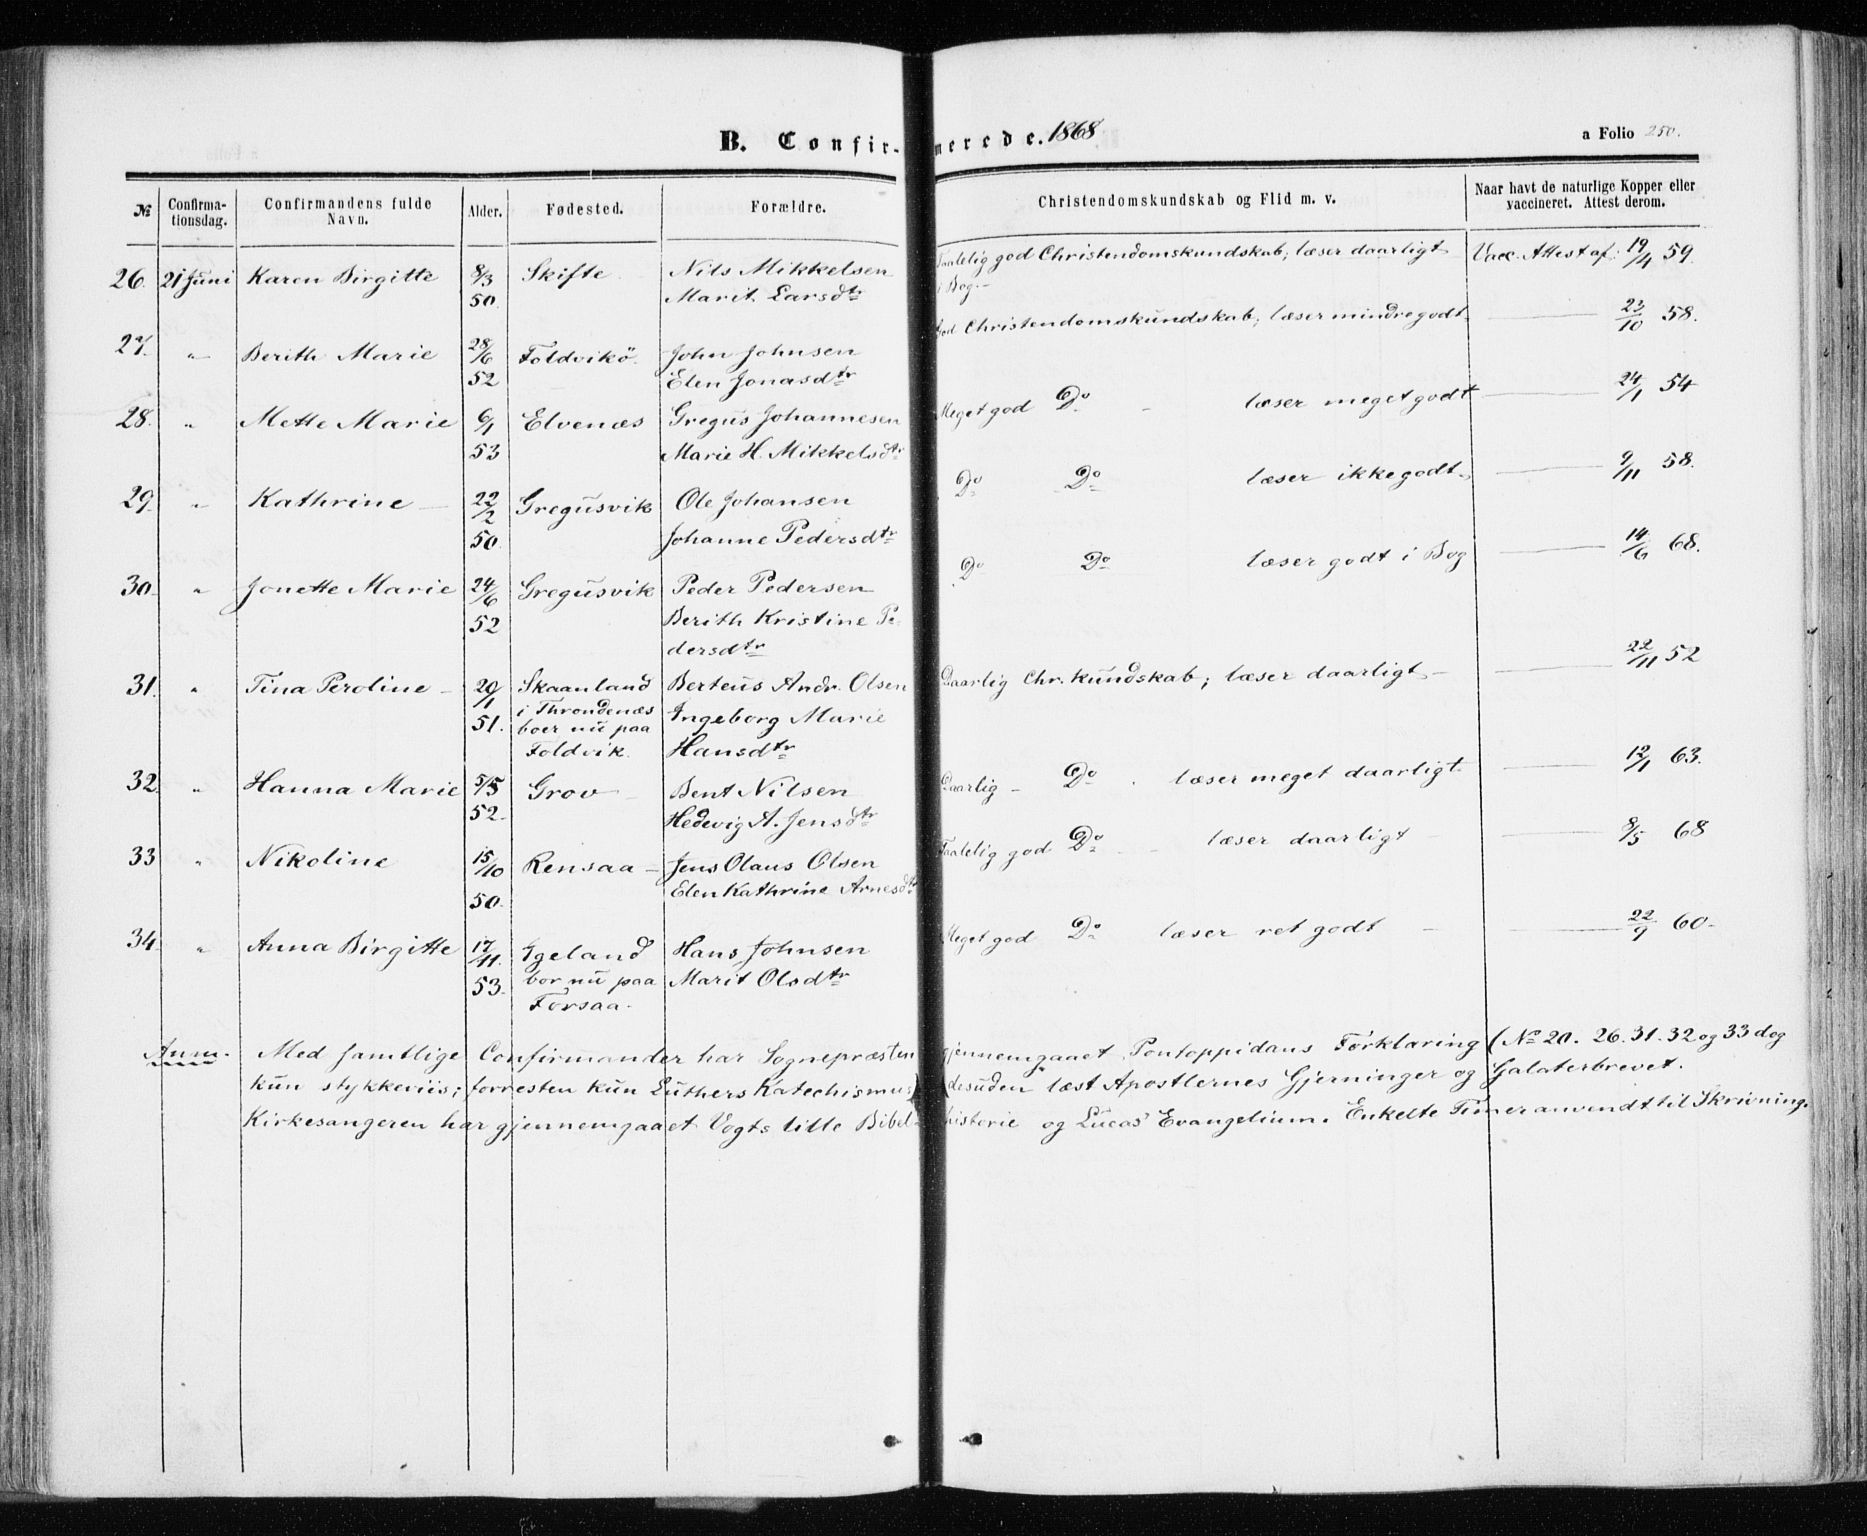 B. Confirmerede. 1868
a Folio 250.
№ Confirmationsdag. Confirmandens fulde Navn. Alder. Fødested. Forældre. Christendomskundskab og Flid m. v. Naar havt de naturlige Kopper eller vaccineret. Attest derom.
26. 21 Juni Karen Birgitte 8/3 Skifte Nils Mikkelsen Taalelig god Christendomskundskab; læser daarligt Vacc. Attest af: 19/4 59.
50. Marit Larsdtr i Bog.
27. " Berith Marie 28/6 Foldvikö. John Johnsen God Christendomskundskab; læser mindre godt 23/10 58.
52 Elen Jonasdtr
28. " Mette Marie 6/1 Elvenæs Gregus Johannesen Meget god Do læser meget godt 24/1 54
53 Marie H. Mikkelsdtr
29. " Kathrine 22/2 Gregusvik Ole Johansen Do Do læser ikke godt 9/11 58.
50. Johanne Pedersdtr
30. " Jonette Marie 24/6 Gregusvik Peder Pedersen Do Do læser godt i Bog 14/6 68.
52 Berith Kristine Pe-
dersdtr
31. " Tina Peroline 20/1 Skaanland Berteus Andr. Olsen Daarlig Chr. kundskab; læser daarligt 22/11 52
51. i Throndenæs Ingeborg Marie
boer nu paa Hansdtr
Foldvik.
32. " Hanna Marie 5/5 Grov Bent Nilsen Daarlig Do læser meget daarligt 12/1 63.
52. Hedevig A. Jensdtr
33 " Nikoline 15/10 Rensaa Jens Olaus Olsen Taalelig god Do læser daarligt 8/5 68
50. Elen Kathrine Arnesdtr
34. " Anna Birgitte 17/11. Ygeland Hans Johnsen Meget god Do læser ret godt 22/9 60.
53. bor nu paa Marit Olsdtr
Forsaa.
Anm. Med samtlige Confirmander har Sognepræsten gjennemgaaet Pontoppidans Forklaring (No 20. 26. 31. 32 og 33 dog
kun stykkeviis; forresten kun Luthers Katechismus) desuden læst Apostlernes Gjerninger og Galaterbrevet.
Kirkesangeren har gjennemgaaet Vogts lille Bibelhistorie og Lucas' Evangelium. Enkelte Timer anvendt til Skrivning.